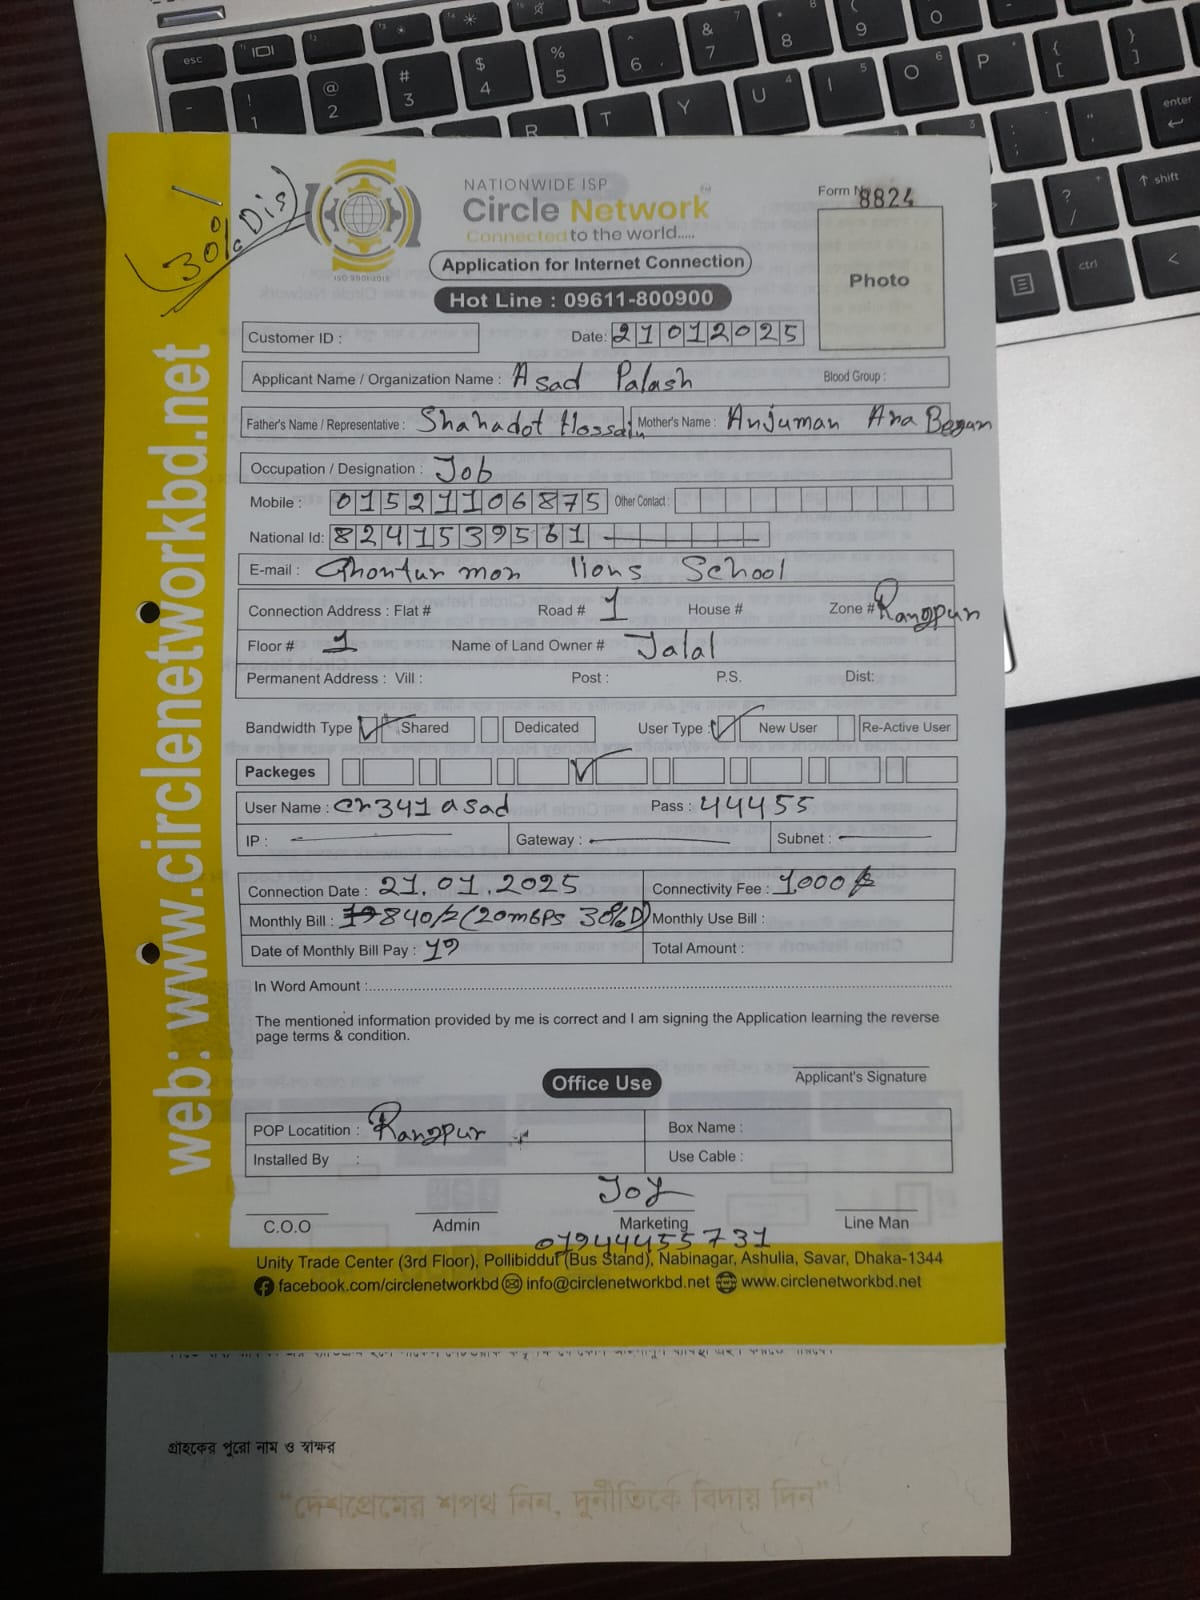 NATIONWIDE ISP
Circle Network
Connected to the world.....
ISO 9001:2015
Form No 8824
(30% Dis)
Application for Internet Connection
Hot Line : 09611-800900
Photo
Customer ID :
Date: 21012025
Applicant Name / Organization Name : Asad Palash Blood Group :
Father's Name / Representative : Shahadot Hossain Mother's Name : Anjuman Ara Begum
Occupation / Designation : Job
Mobile : 01521106875 Other Contact :
National Id: 8241539561
E-mail : lions School
Connection Address : Flat # Road # 1 House # Zone # Rangpur
Floor # 1 Name of Land Owner # Jalal
Permanent Address : Vill : Post : P.S. Dist:
Bandwidth Type ✓ Shared Dedicated User Type : ✓ New User Re-Active User
Packeges ✓
User Name : cr341asad Pass : 44455
IP : Gateway : Subnet :
Connection Date : 21.01.2025 Connectivity Fee : 1000
Monthly Bill : 840/= (20mbps 30%D) Monthly Use Bill :
Date of Monthly Bill Pay : Total Amount :
In Word Amount :
The mentioned information provided by me is correct and I am signing the Application learning the reverse
page terms & condition.
Applicant's Signature
Office Use
POP Locatition : Rangpur Box Name :
Installed By : Use Cable :
Joy
C.O.O Admin Marketing Line Man
01944455731
Unity Trade Center (3rd Floor), Pollibiddut (Bus Stand), Nabinagar, Ashulia, Savar, Dhaka-1344
facebook.com/circlenetworkbd info@circlenetworkbd.net www.circlenetworkbd.net
web: www.circlenetworkbd.net
গ্রাহকের পুরো নাম ও স্বাক্ষর
“দেশপ্রেমের শপথ নিন, দুর্নীতিকে বিদায় দিন”